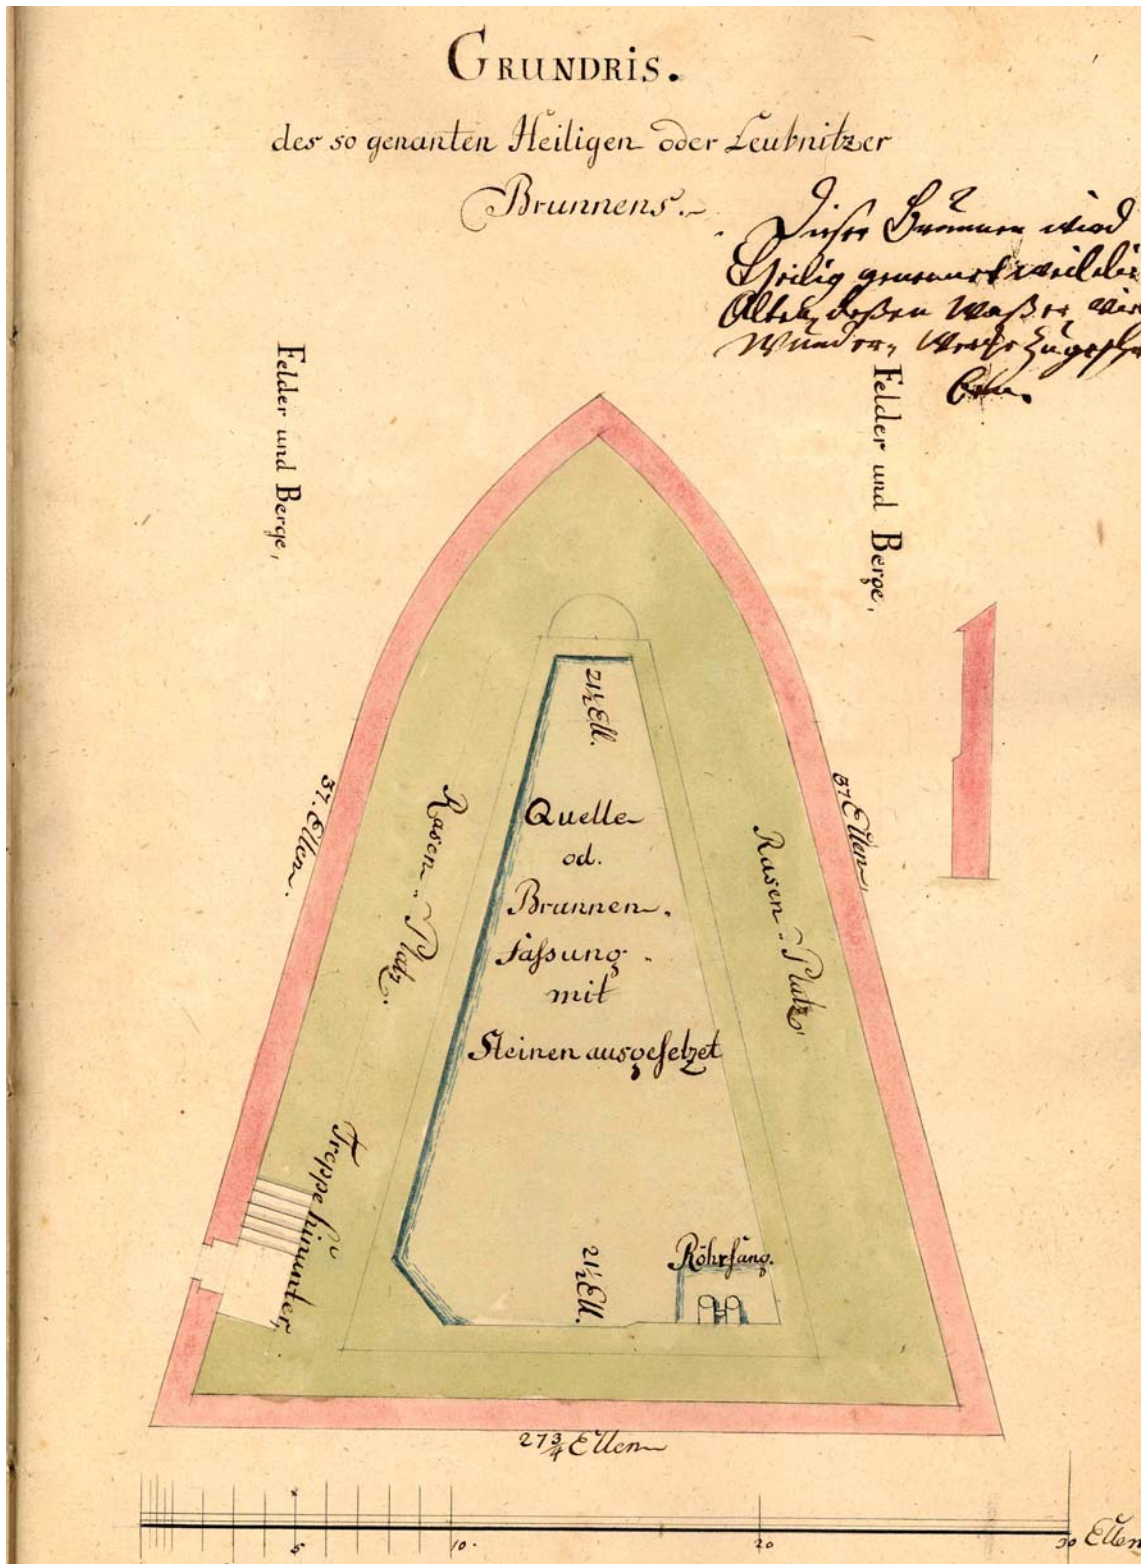 GRUNDRIS.
des so genanten Heiligen oder Leubnitzer
Brunnens.
Dieser Brunnen wird
Heilig genennet weil die
Alten deßen Waßer vie
Wunder, Werke zugeschr
ben.
Felder und Berge,
Felder und Berge,
21½ Ell.
37. Ellen.
37 Ellen,
Rasen-Platz.
Rasen-Platz,
Quelle
od.
Brunnen-
fassung
mit
Steinen ausgesetzet
Treppe hinunter,
21½ Ell.
Röhrfang.
27¾ Ellen
5. 10. 20 30 Ellen